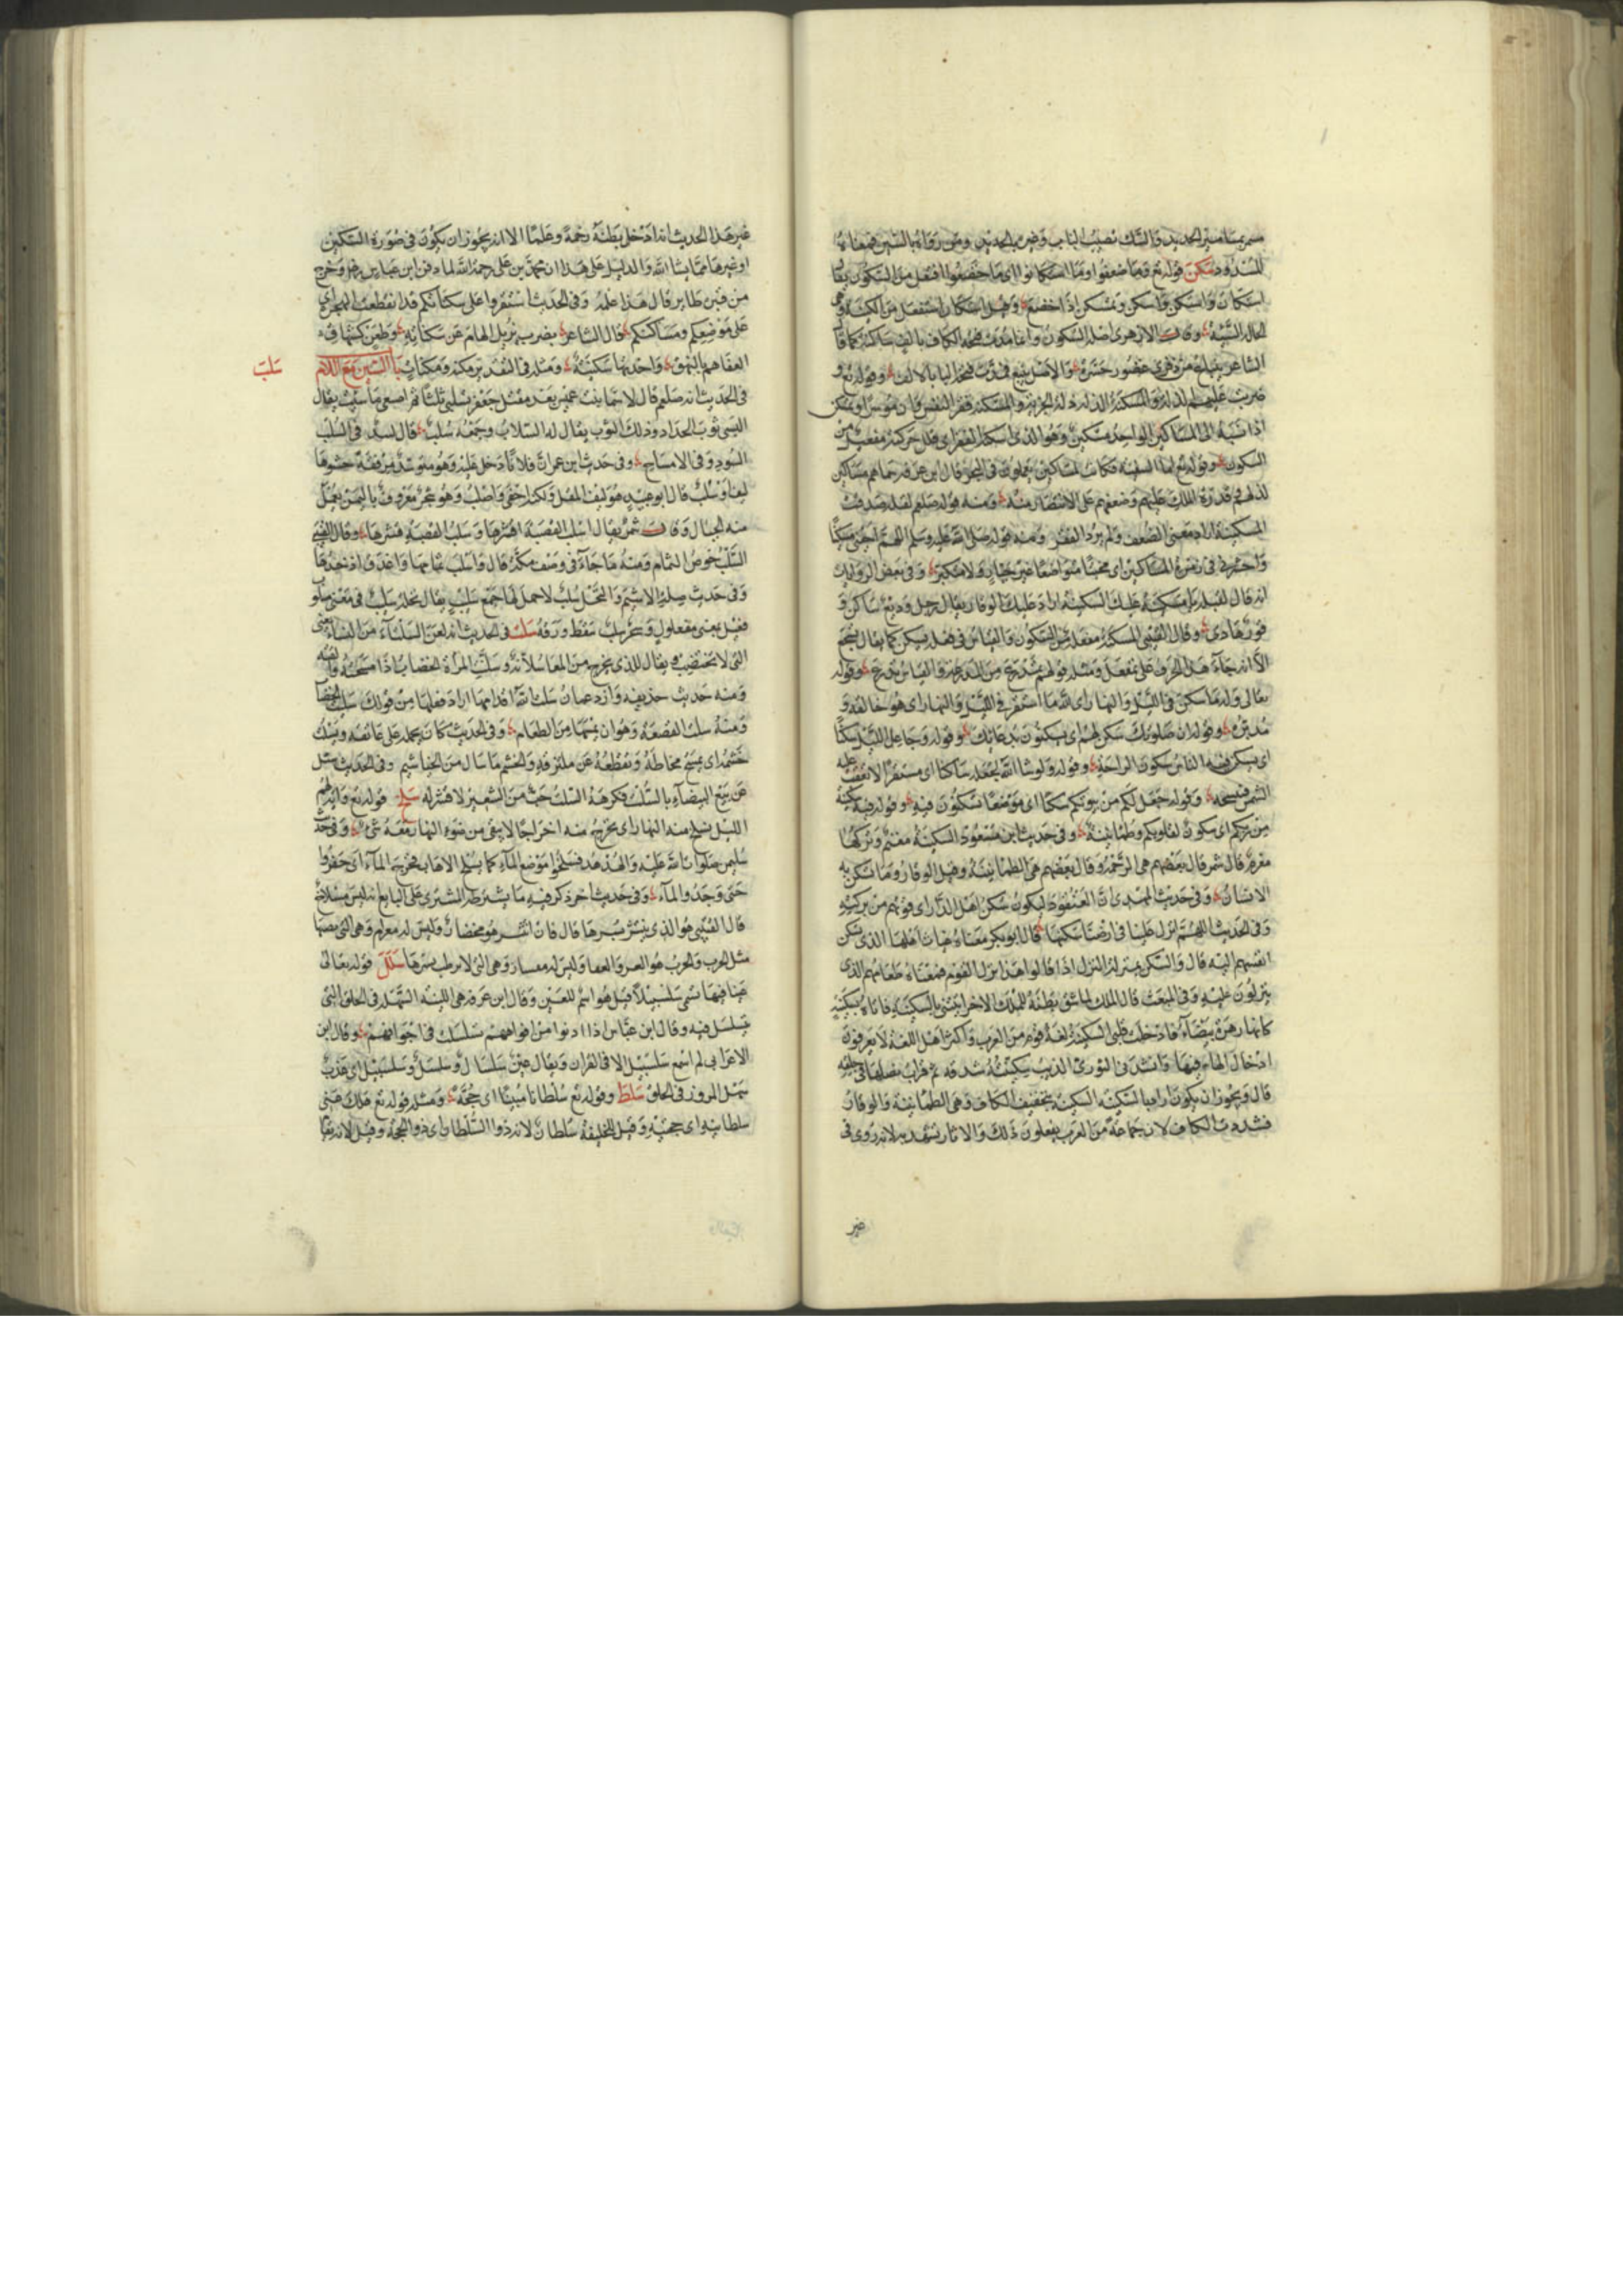 مسمر بمسامير الحديد والسك تضبيب الباب وضربه بالحديد ومن رواه بالسين فمعناه
المسدود سكن قوله تع وما ضعفوا وما استكانوا اى ما خضعوا افتعل من السكون يقال
استكان واستكن واسكن وتمسكن اذا خضع وقيل استكان استفعل من الكينة وهى
الحال السيئة وقال الازهرى اصله السكون وانما مدت فتحة الكاف بالف ساكنة كما قال
الشاعر ينباع من ذفرى غضوب جسرة والاصل ينبع فمدت فتحة الباء بالالف وقوله تع و
ضربت عليهم الذلة والمسكنة الذلة ذلة الجزية والمسكنة فقر النفس وان موسرا وتمسكن
اذا تشبه الى المساكين الواحد مسكين وهو الذى اسكنه الفقر اى قلل حركته مفعيل من
السكون وقوله تع اما السفينة فكانت لمساكين يعملون فى البحر قال ابن عرفة سماهم مساكين
لذلهم قدرة الملك عليهم وضعفهم على الانتصار منه ومنه قوله صلعم لقيلة صدقت
المسكينة اراد معنى الضعف ولم يرد الفقر ومنه قوله صلى الله عليه وسلم اللهم احينى مسكينا
واحشرنى فى زمرة المساكين اى مخبتا متواضعا غير جبار ولا متكبر وفى بعض الروايات
انه قال لقيلة يا مسكينة عليك السكينة اراد عليك الوقار يقال رجل وديع ساكن و
قور هادى وقال القتيبى المسكنة مفعلة من السكون والقياس فى فعله يسكن كما يقال يشجع
الا انه جاء هذا الحرف على تمفعل ومثله قولهم تمدرع من المدرعة والقياس تدرع وقوله
تعالى وله ما سكن فى الليل والنهار اى لله ما استقر فى الليل والنهار اى هو خالقه و
مدبره وقوله ان صلوتك سكن لهم اى يسكنون بدعائك وقوله وجاعل الليل سكنا
اى يسكن فيه الناس سكون الراحة وقوله ولو شا الله لجعله ساكنا اى مستقرا لا تقف عليه
الشمس فتنسخه وقوله جعل لكم من بيوتكم سكنا اى موضعا تسكنون فيه وقوله فيه سكينة
من ربكم اى سكون لقلوبكم وطمانينة وفى حديث ابن مسعود السكينة مغنم وتركها
مغرم قال شمر قال بعضهم هى الرحمة وقال بعضهم هى الطمانينة وقيل الوقار وما تسكن به
الانسان وفى حديث المهدى ان العنقود ليكون سكن اهل الدار اى قوتهم من بركته
وفى الحديث اللهم انزل علينا فى ارضنا سكنها قال ابو بكر معناه غياث اهلها الذى تسكن
انفسهم اليه قال والسكن بمنزلة النزل اذا قالوا هذا نزل القوم فمعناه طعامهم الذى
ينزلون عليه وفى المبعث قال الملك لما شق بطنه للملك الاخر ايتنى بالسكينة فاتاه بسكينة
كانها رهرهة بيضاء فادخلت قلبى السكينة لغة قوم من العرب واكثر اهل اللغة لا يعرفون
ادخال الهاء فيها وانشدنى التوزى الذيب سكينته شدقه ثم قراب نصلها حلقه
قال ويجوز ان يكون اراد بها السكينة السكينة بتخفيف الكاف وهى الطمانينة والوقار
فشددت الكاف لان جماعة من العرب يفعلون ذلك والاثار تشهد به لانه روى فى
غير
غير هذا الحديث انه ادخل بطنه رحمة وعلما الا انه يجوز ان يكون فى صورة السكين
او غيرها مما يشا الله والدليل على هذا ان محمد بن على رحمة الله لما دفن ابن عباس رضه خرج
من قبره طاير قال هذا علمه وفى الحديث استقروا على سكناتكم قد انقطعت الهجرة اى
على مواضعكم ومساكنكم قال الشاعر بضرب يزيل الهام عن سكناته وطعن كتشهاق
العفاهم بالنهق واحدتها سكنة ومثله فى التقدير مكنة ومكنات باب السين مع اللام
سلب
فى الحديث انه صلعم قال لاسما بنت عميس بعد مقتل جعفر تسلبى ثلثا ثم اصنعى ما شئت يقال
البسى ثوب الحداد وذلك الثوب يقال له السلاب وجمعه سلب قال لبيد فى السلب
السود وفى الامساح وفى حديث ابن عمر ان فلانا دخل عليه وهو متوسد مرفقة حشوها
ليف او سلب قال ابو عبيد هو ليف المقل ولكنه اخفى واصلب وهو شجر معروف باليمن يعمل
منه الحبال وقال شمر يقال اسلب القصبة اقشرها وسلب القصبة قشرها وقال القتيبى
السلب خوص الثمام ومنه ما جاء فى وصف مكة قال واسلب ثمامها واغدق اذخرها
وفى حديث صلة الاشيم والنخل سلب لا حمل لها جمع سليب يقال نخلة سليب فى معنى مسلوب
فعيل بمعنى مفعول وشجر سليب سقط ورقه سلت فى الحديث انه لعن السلتاء من النساء يعنى
التى لا تختضب ويقال للذى يخرج من المعا سلاتة وسلتت المرأة الخضاب اذا مسحته والقته
ومنه حديث حذيفة وازد عمان سلت الله اقدامها اراد قطعها من قولك سلت الخضاب
ومنه سلت القصعة وهو ان يمسحها من الطعام وفى الحديث كان يحمله على عاتقه ويسلت
خشمه اى يمسح مخاطه ويقطعه عن ملتزقه والخشم ما سال من الخياشيم وفى الحديث سئل
عن بيع البيضاء بالسلت فكرهه السلت حب من الشعير لا قشر له سلخ قوله تع واية لهم
الليل نسلخ منه النهار اى نخرج منه اخراجا لا يبقى من ضوء النهار معه شئ وفى حديث
سليمن صلوات الله عليه والهدهد فسلخوا موضع الماء كما يسلخ الاهاب فخرج الماء اى حفروا
حتى وجدوا الماء وفى حديث اخر ذكر فيه ما يشترط المشترى على البايع انه ليس مسلاخ
قال القتيبى هو الذى ينتثر بسرها قال فان انتشر هو مخضار وليس له معرار وهى التى يصيبها
مثل الجرب والجرب هو العر والعفا وليس له مبسار وهى التى لا يرطب بسرها سلل قوله تعالى
عينا فيها تسمى سلسبيلا قيل هو اسم للعين وقال ابن عرفة هى اللينة السهلة فى الحلق التى
تتسلسل فيه وقال ابن عباس اذا ادنوا من افواههم تسلسلت فى اجوافهم وقال ابن
الاعرابى لم اسمع سلسبيل الا فى القران ويقال عين سلسال وسلسل وسلسبيل اى عذب
سهل المرور فى الحلق سلط وقوله تع سلطانا مبينا اى حجة ومثله قوله تع هلك عنى
سلطانيه اى حجتيه وقيل للخليفة سلطان لانه ذو السلطان اى ذو الحجة وقيل لانه يقام